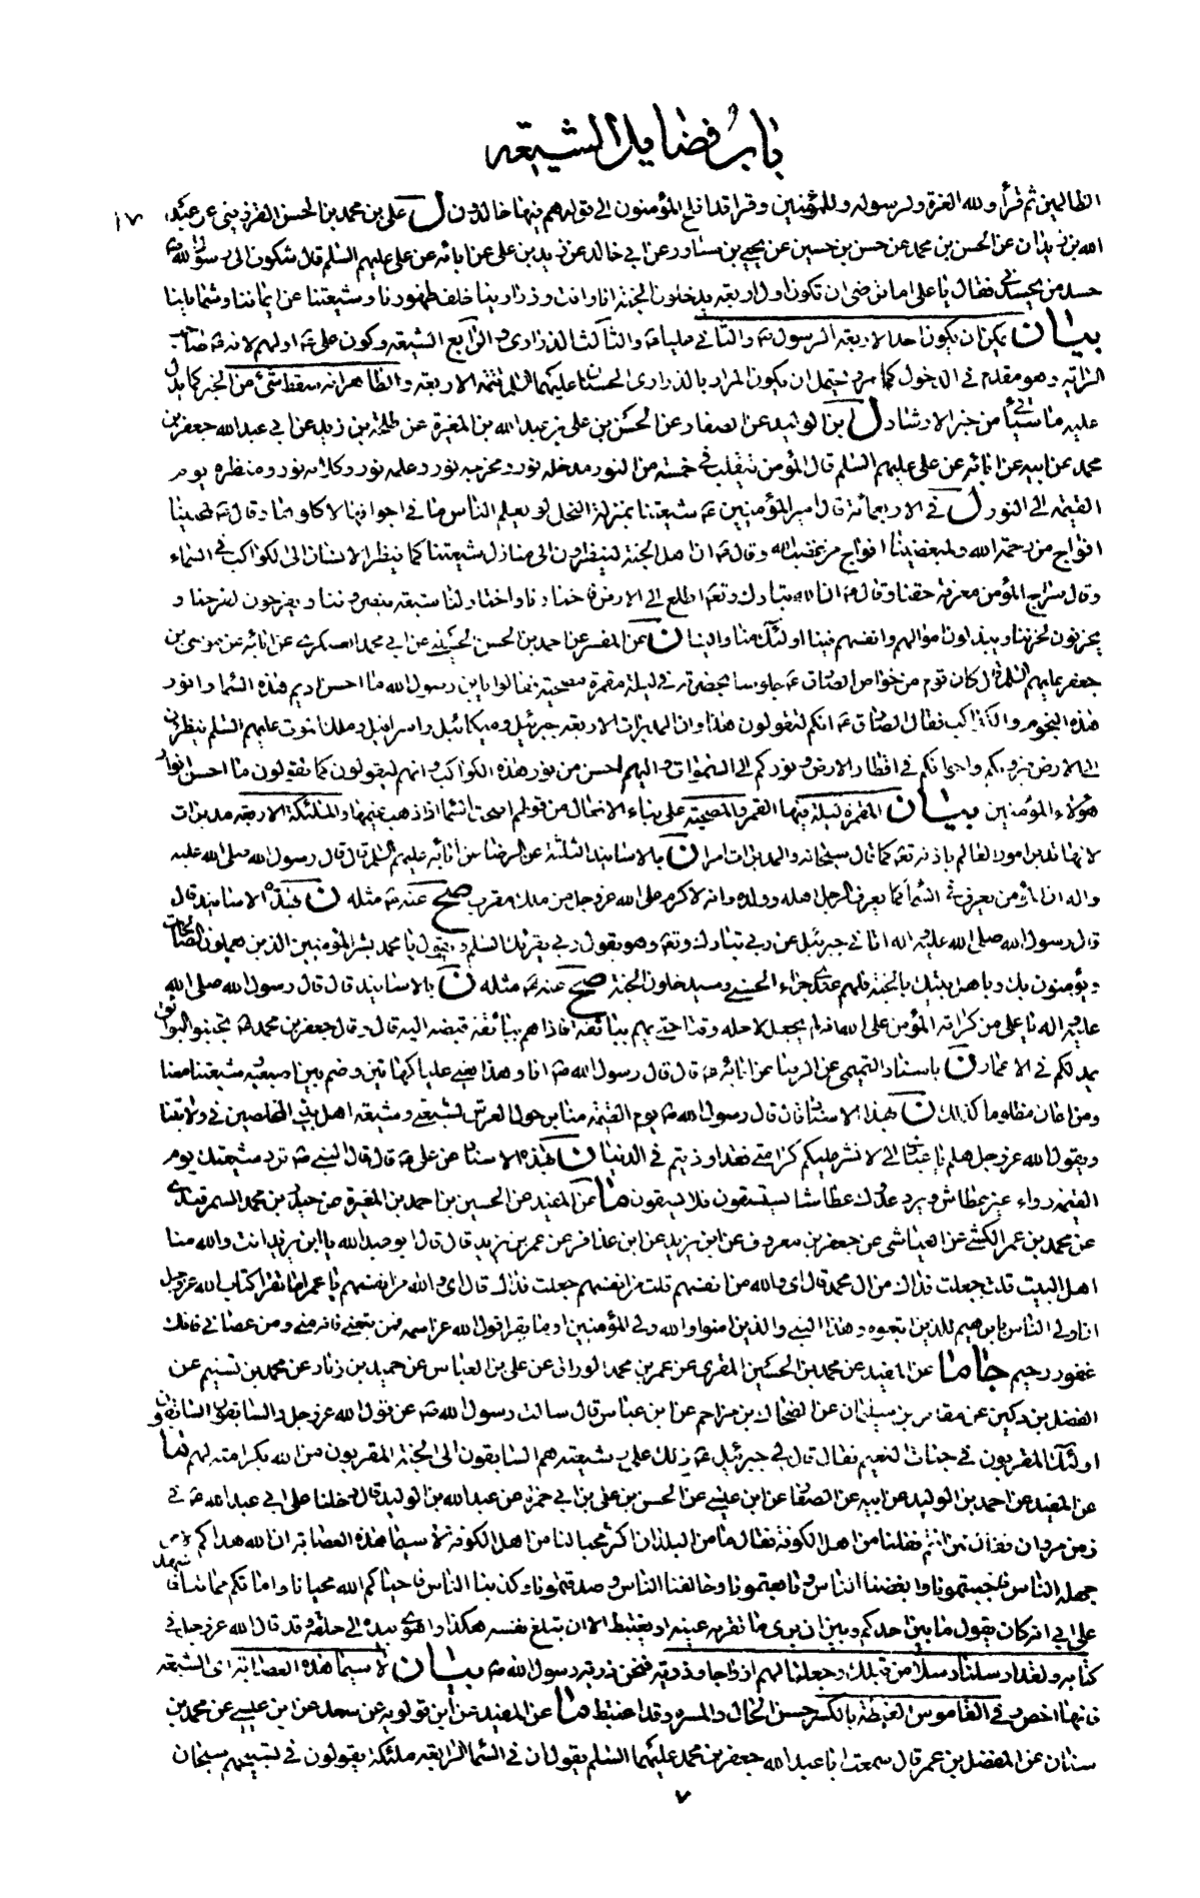 باب فضايل الشيعه
١٧
الظالمين ثم قرأ ولله العزة ولرسوله وللمؤمنين وقرا قد افلح المؤمنون الى قوله هم فيها خالدون ل علي بن محمد بن الحسن القزويني عن عبد
الله بن زيدان عن الحسن بن محمد عن حسن بن حسين عن يحيى بن مساور عن ابي خالد عن زيد بن علي عن ابائه عن علي عليهم السلم قال شكوت الى رسول الله ص
حسد من يحسدني فقال يا علي اما ترضى ان تكون اول اربعة يدخلون الجنة انا وانت وذرارينا خلف ظهورنا وشيعتنا عن ايماننا وشمايلنا
بيان يمكن ان يكون احد الاربعة الرسول ص والثاني عليا ع والثالث الذراري والرابع الشيعه وكون علي ع اولهم لانه ع صاحب
الراية وهو مقدم في الدخول كما مر ويحتمل ان يكون المراد بالذراري الحسنان عليهما السلم تتمة الاربعة والظاهر انه سقط شئ من الخبر كما يدل
عليه ما سيأتي من خبر الارشاد ل بن الوليد عن الصفار عن الحسن بن علي بن عبد الله بن المغيرة عن طلحة بن زيد عن ابي عبد الله جعفر بن
محمد عن ابيه عن ابائه عن علي عليهم السلم قال المؤمن يتقلب في خمسة من النور مدخله نور ومخرجه نور وعلمه نور وكلامه نور ومنظره يوم
القيمة الى النور ل في الاربعمائة قال امير المؤمنين ع شيعتنا بمنزلة النحل لو يعلم الناس ما في اجوافها لاكلوها وقال ع لمحبينا
افواج من رحمة الله ولمبغضينا افواج من غضب الله وقال ع ان اهل الجنة لينظرون الى منازل شيعتنا كما ينظر الانسان الى الكواكب في السماء
وقال سراج المؤمن معرفة حقنا وقال ع ان الله تبارك وتعه اطلع الى الارض فاختارنا واختار لنا شيعة ينصروننا ويفرحون لفرحنا و
يحزنون لحزننا ويبذلون اموالهم وانفسهم فينا اولئك منا والينا ن عن المفسر عن احمد بن الحسن الحسيني عن ابي محمد العسكري عن ابائه عن موسى بن
جعفر عليهم السلم قال كان قوم من خواص الصادق ع جلوسا بحضرته في ليلة مقمرة مصحية فقالوا يابن رسول الله ما احسن اديم هذه السماء وانور
هذه النجوم والكواكب فقال الصادق ع انكم لتقولون هذا وان المدبرات الاربعة جبرئيل وميكائيل واسرافيل وملك الموت عليهم السلم ينظرون
الى الارض فيرونكم واخوانكم في اقطار الارض ونوركم الى السموات واليهم احسن من نور هذه الكواكب وانهم ليقولون كما تقولون ما احسن انوار
هؤلاء المؤمنين بيان المقمرة ليلة فيها القمر والمصحية على بناء الافعال من قولهم اصحت السماء اذا ذهب غيمها والملئكة الاربعة مدبرات
لانها تدبر امور العالم باذنه تعه كما قال سبحانه والمدبرات امرا ن بالاسانيد الثلثة عن الرضا عن ابائه عليهم السلم قال قال رسول الله صلى الله عليه
واله ان المؤمن يعرف في السماء كما يعرف الرجل اهله وولده وانه لاكرم على الله عز وجل من ملك مقرب صح عنه ع مثله ن بهذه الاسانيد قال
قال رسول الله صلى الله عليه واله اتاني جبرئيل عن ربي تبارك وتعه وهو يقول ربي يقرئك السلم ويقول يا محمد بشر المؤمنين الذين يعملون الصالحات
ويؤمنون بك وباهل بيتك بالجنة فلهم عندي جزاء الحسنى وسيدخلون الجنة صح عنه ع مثله ن بالاسانيد قال قال رسول الله صلى الله
عليه واله يا علي من كرامة المؤمن على الله انه لم يجعل لاجله وقتا حتى يهم ببائقة فاذا هم ببائقة قبضه اليه قال وقال جعفر بن محمد ع تجنبوا البوائق
يمد لكم في الاعمار ن باسناد التميمي عن الرضا عن ابائه ع قال قال رسول الله ص انا وهذا يعني عليا كهاتين وضم بين اصبعيه وشيعتنا معنا
ومن اعان مظلوما كذلك ن بهذا الاسناد قال قال رسول الله ص يوم القيمة منابر حول العرش لشيعتي وشيعة اهل بيتي المخلصين في ولايتنا
ويقول الله عز وجل هلم يا عبادي الي لانشر عليكم كرامتي فقد اوذيتم في الدنيا ن بهذا الاسناد عن علي ع قال قال النبي ص ترد شيعتك يوم
القيمة رواء غير عطاش ويرد عدوك عطاشا يستسقون فلا يسقون ما عن المفيد عن الحسين بن احمد بن المغيرة عن حيدر بن محمد السمرقندي
عن محمد بن عمر الكشي عن العياشي عن جعفر بن معروف عن ابن يزيد عن ابن عذافر عن عمر بن يزيد قال قال ابو عبد الله يا ابن يزيد انت والله منا
اهل البيت قلت جعلت فداك من ال محمد قال اي والله من انفسهم قلت من انفسهم جعلت فداك قال اي والله من انفسهم يا عمر اما تقرأ كتاب الله عز وجل
ان اولى الناس بابرهيم للذين اتبعوه وهذا النبي والذين امنوا والله ولي المؤمنين اوما تقرأ قول الله عز اسمه فمن تبعني فانه مني ومن عصاني فانك
غفور رحيم جا ما عن المفيد عن محمد بن الحسين المقري عن عمر بن محمد الوراق عن علي بن العباس عن حميد بن زياد عن محمد بن تسنيم عن
الفضل بن دكين عن مقاتل بن سليمان عن الضحاك بن مزاحم عن ابن عباس قال سالت رسول الله ص عن قول الله عز وجل والسابقون السابقون
اولئك المقربون في جنات النعيم فقال قال لي جبرئيل ع ذلك علي وشيعته هم السابقون الى الجنة المقربون من الله بكرامته لهم ما
عن المفيد عن احمد بن الوليد عن ابيه عن الصفار عن ابن عيسى عن الحسن بن علي بن ابي حمزة عن عبد الله بن الوليد قال دخلنا على ابي عبد الله ع في
زمن مروان فقال ممن انتم فقلنا من اهل الكوفة فقال ما من البلدان اكثر محبا لنا من اهل الكوفة لا سيما هذه العصابة ان الله هداكم لامر
جهله الناس فاحببتمونا وابغضنا الناس وتابعتمونا وخالفنا الناس وصدقتمونا وكذبنا الناس فاحياكم الله محيانا واماتكم مماتنا فاشهد
على ابي انه كان يقول ما بين احدكم وبين ان يرى ما تقر به عينه او يغتبط الا ان تبلغ نفسه هكذا واهوى بيده الى حلقه وقد قال الله عز وجل في
كتابه ولقد ارسلنا رسلا من قبلك وجعلنا لهم ازواجا وذرية فنحن ذرية رسول الله ص بيان لا سيما هذه العصابة اي الشيعه
فانها اخص وفي القاموس الغبطة بالكسر حسن الحال والمسرة وقد اغتبط ما عن المفيد عن ابن قولويه عن سعد عن ابن عيسى عن محمد بن
سنان عن المفضل بن عمر قال سمعت ابا عبد الله جعفر بن محمد عليهما السلم يقول ان في السماء الرابعة ملئكة يقولون في تسبيحهم سبحان
٧